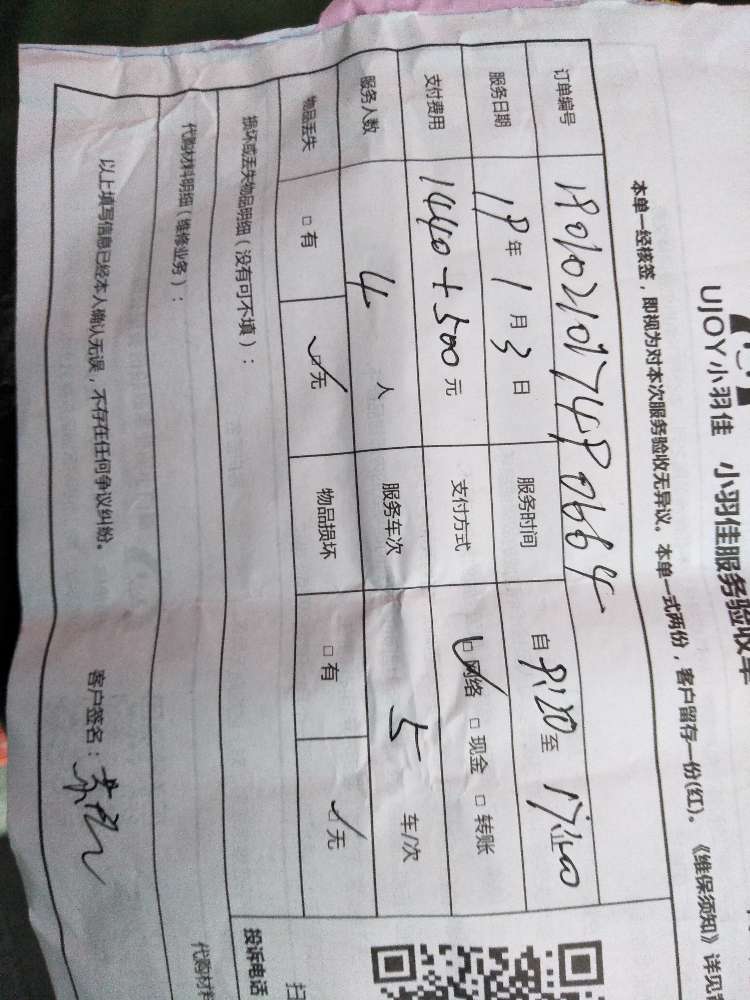 UJOY小羽佳 小羽佳服务验收单
本单一经核签，即视为对本次服务验收无异议。本单一式两份，客户留存一份(红)。《维保须知》详见
订单编号 19010210174890664
服务日期 19年1月3日 服务时间 自9:20至17:00
支付费用 1440+500元 支付方式 ☑网络 □现金 □转账
服务人数 4人 服务车次 5车/次
物品丢失 □有 ☑无 物品损坏 □有 ☑无
损坏或丢失物品明细（没有可不填）：
代购材料明细（维修业务）： 代购材料
以上填写信息已经本人确认无误，不存在任何争议纠纷。 客户签名：
投诉电话
扫